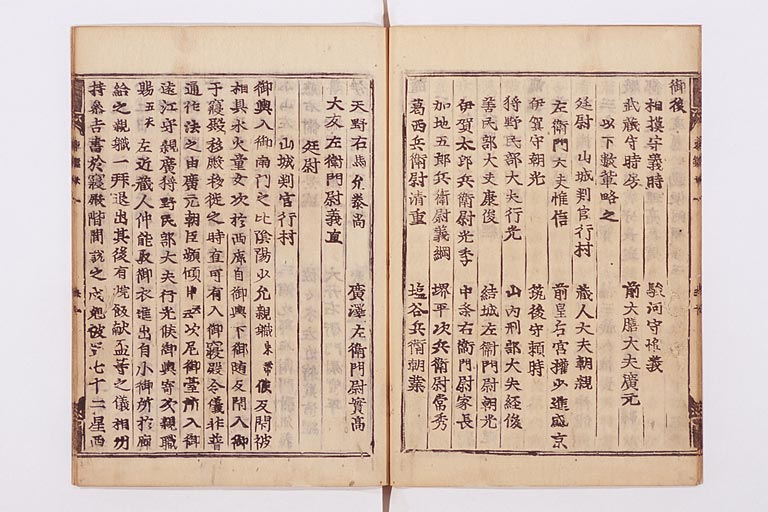 御後
相摸守義時 駿河守惟義
武藏守時房 前大膳大夫廣元
以下數輩略之
廷尉 山城判官行村 藏人大夫朝親
左衛門大夫惟信 前皇后宮權少進盛京
伊賀守朝光 筑後守頼時
狩野民部大夫行光 山内刑部大夫経俊
善民部大夫康俊 結城左衛門尉朝光
伊賀太郎兵衛尉光季 中条右衛門尉家長
加地五郎兵衛尉義綱 堺平次兵衛尉常秀
葛西兵衛尉清重 塩谷兵衛朝業
天野右馬允泰高 廣澤左衛門尉實高
大友左衛門尉義直
廷尉
山城判官行村
御輿入御南門之比陰陽少允親職束帶候反閇彼
相具水火童女次於西廊自御輿下御随反閇入御
于寢殿移殿移徙之時直可有入御寢殿令儀非普
通作法之由廣元朝臣頻傾申云々次尼御臺所入御
遠江守親廣狩野民部大夫行光候御輿寄次親職
賜五衣左近藏人仲能取御衣進出自小御所於廊
給之親職一拜退出其後有垸飯献盃等之儀相州
持参吉書於寢殿階間説之戌尅彼 七十二星西